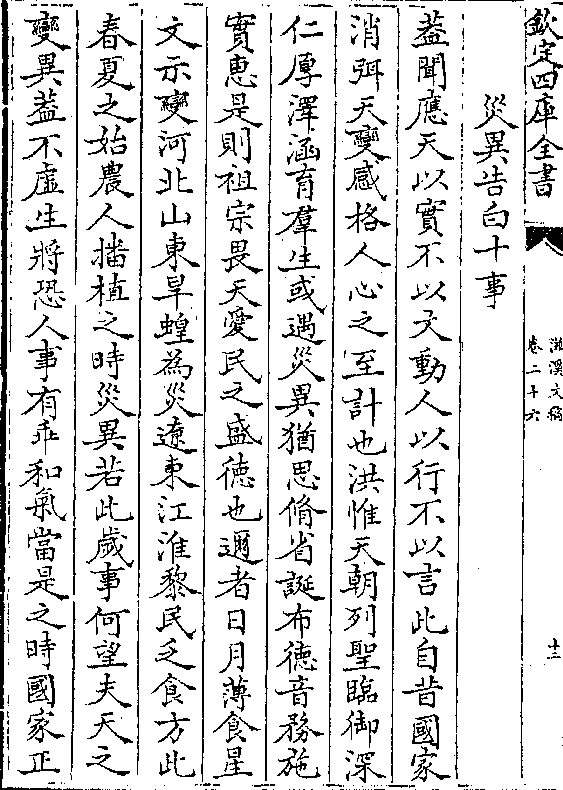 欽定四庫全書
滋溪文稿
卷二十六
十二
災異告白十事
葢聞應天以實不以文動人以行不以言此自昔國家
消弭天變感格人心之至計也洪惟天朝列聖臨御深
仁厚澤涵育羣生或遇災異猶思脩省誕布徳音務施
實惠是則祖宗畏天愛民之盛徳也邇者日月薄食星
文示變河北山東旱蝗為災遼東江淮黎民乏食方此
春夏之始農人播植之時災異若此歲事何望夫天之
變異葢不虛生將恐人事有乖和氣當是之時國家正